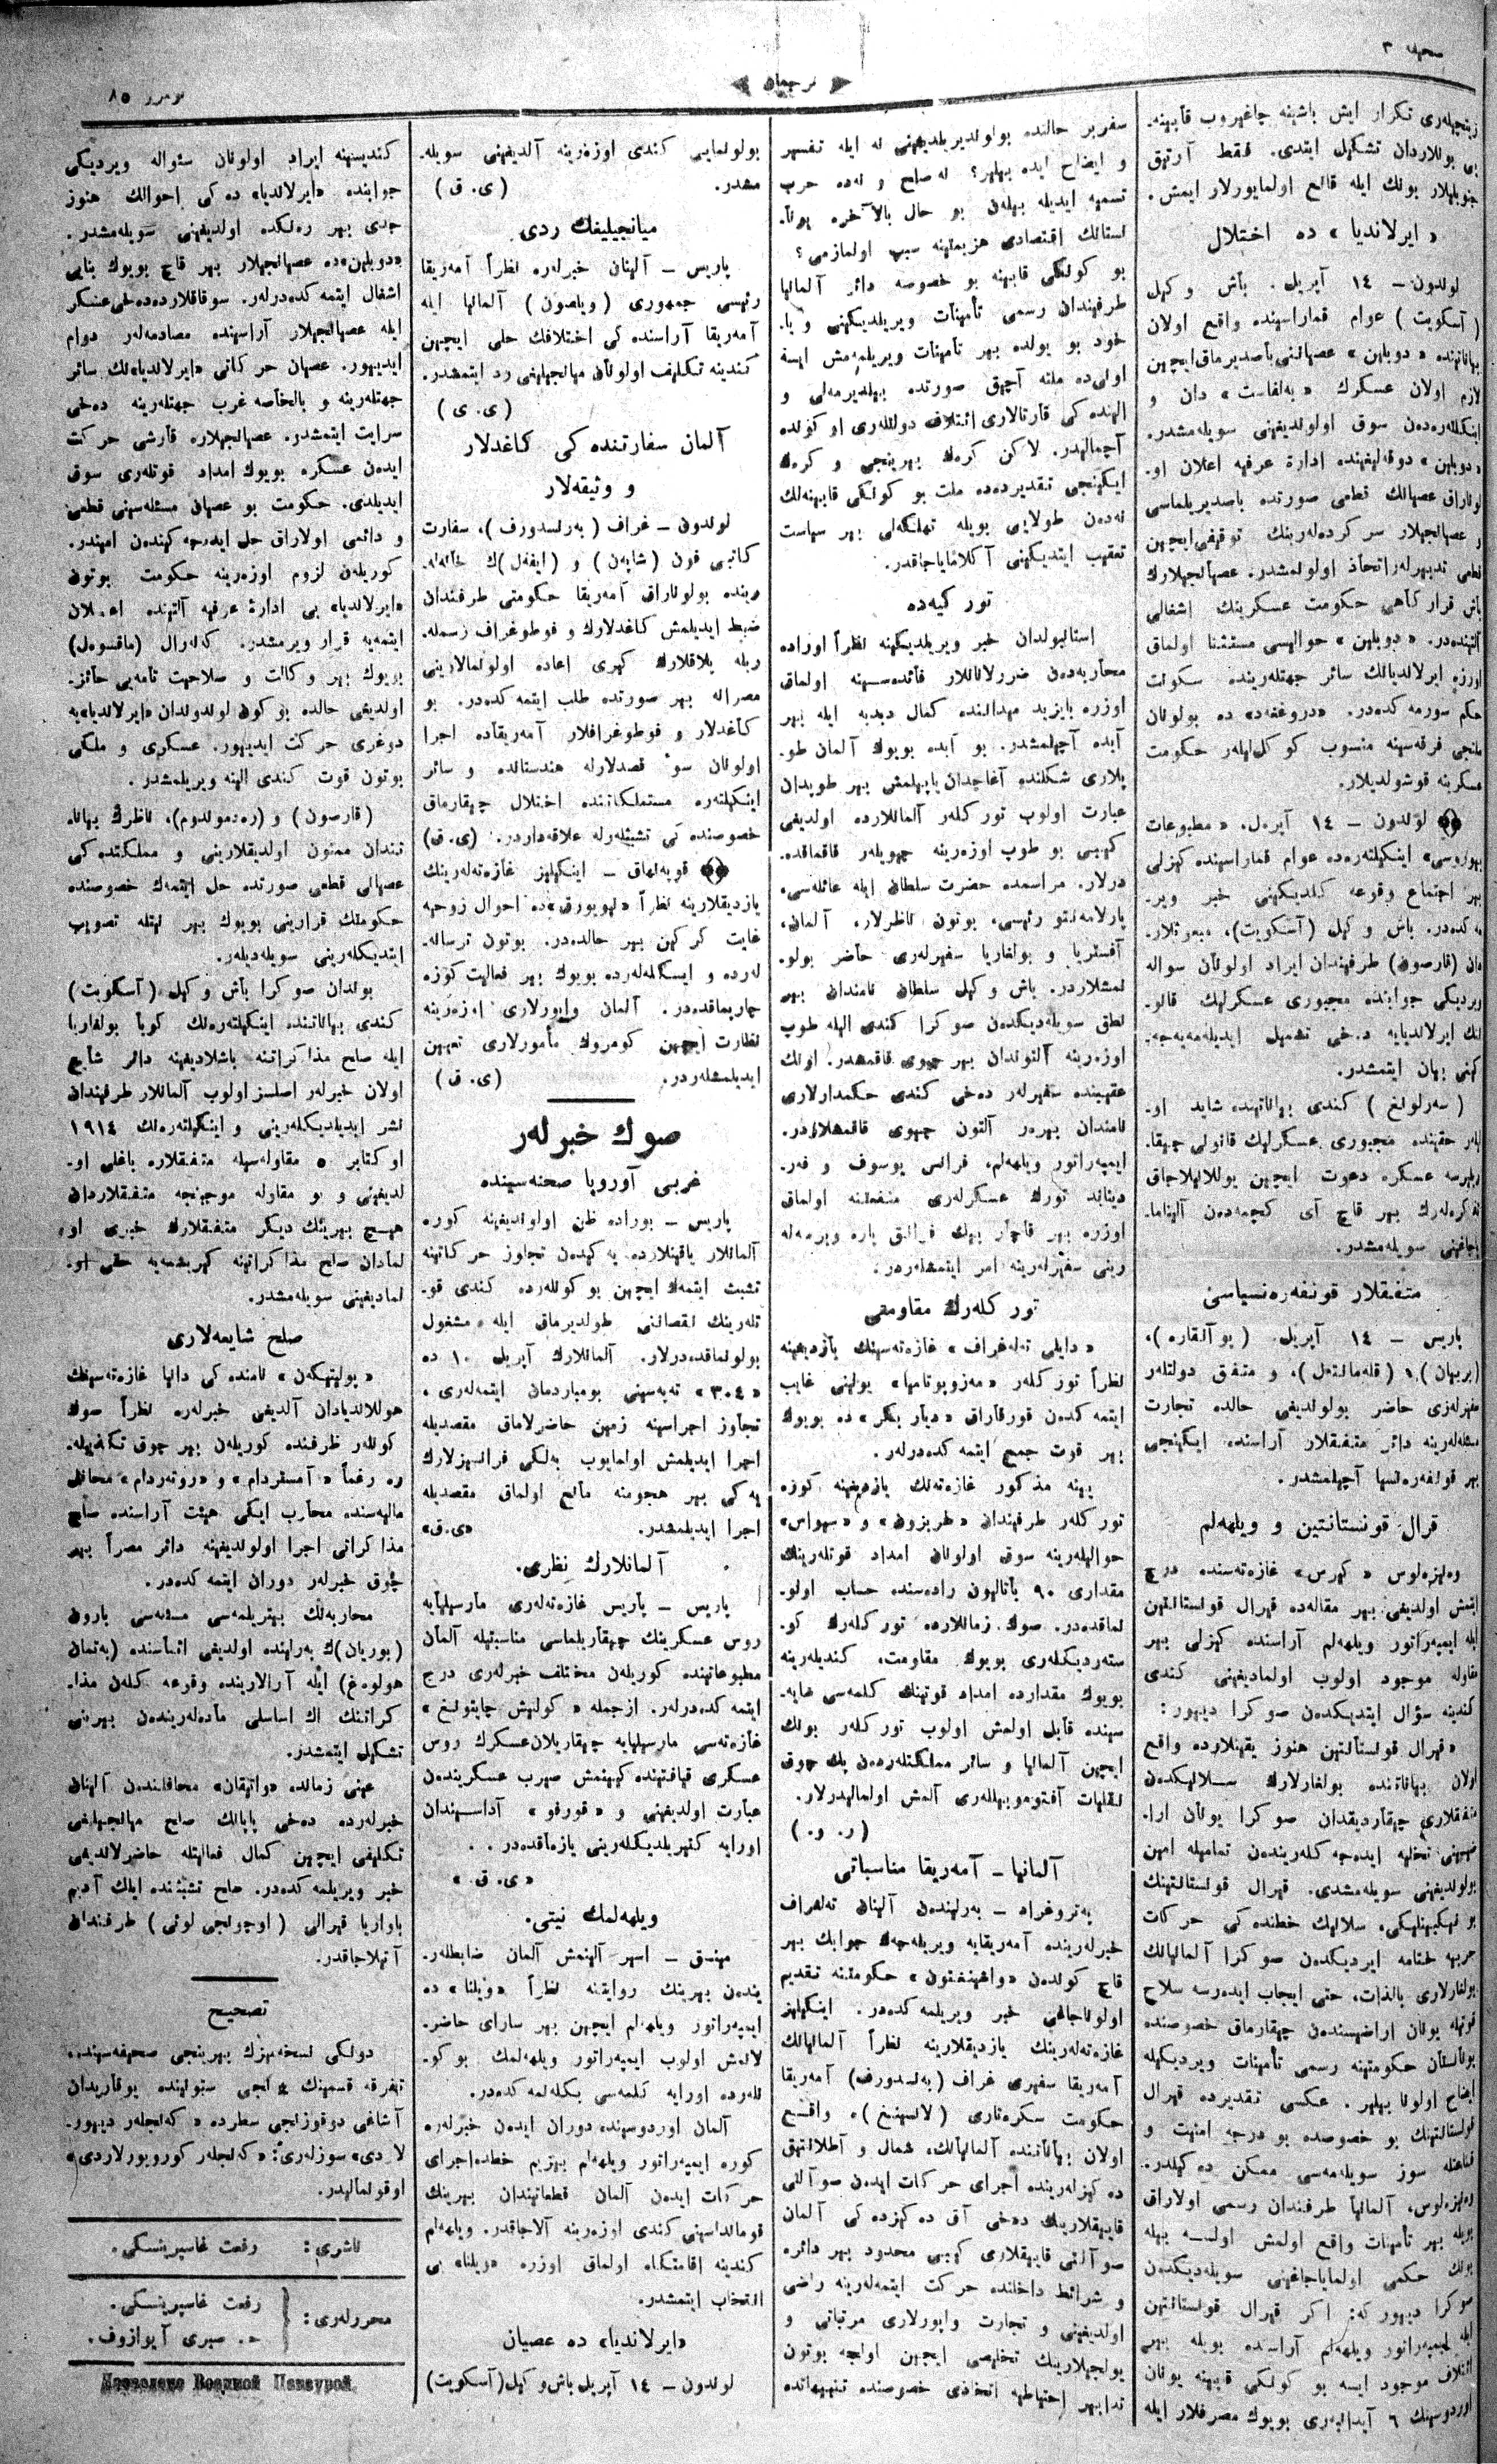 صحیفه ۳
ترجمان
نومرو ۸٥
زینجیله‌ری تکرار ایش باشینه چاغیروب قابینه‌-
یی بونلاردان تشکیل ایتدی. فقط آرتیق
جنوبلیلار بونك ایله قانع اولمایورلار ایمش.
« ایرلاندیا » ده اختلال
لوندون — ١٤ آپریل. باش وکیل
( آسکویت ) عوام قماراسینده واقع اولان
بیاناتنده « دوبلین » عصیاننی باصدیرماق ایچین
لازم اولان عسکرك « به‌لفاست » دان و
اینگلتره‌دن سوق اولوندیغینی سویله‌مشدر.
« دوبلین » دوقه‌لیغینده ادارهٔ عرفیه اعلان او-
لوناراق عصیانك قطعی صورتده باصدیریلماسی
و عصیانجیلار سرکرده‌لرینك توقیفی ایچین
قطعی تدبیرلر اتخاذ اولونمشدر. عصیانجیلارك
باش قرارگاهی حکومت عسکرینك اشغالی
آلتنده‌در. « دوبلین » حوالیسی مستثنا اولماق
اوزره ایرلاندیانك سائر جهتلرینده سکونت
حکم سورمه‌کده‌در. «دروغه‌د» ده بولونان
ملتجی فرقه‌سینه منسوب کوکللیلر حکومت
عسکرینه قوشولدیلار.
لوندون — ١٤ آپریل. « مطبوعات
بیوروسی» اینگلتره‌ده عوام قماراسینده کیزلی
بیر اجتماع وقوعه کلدیگینی خبر ویر-
مه‌کده‌در. باش وکیل (آسکویت)، مبعوثلار-
دان (قارصون) طرفیندان ایراد اولونان سواله
ویردیکی جوابنده مجبوری عسکرلیك قانو-
نك ایرلاندیایه دخی تشمیل ایدیله‌مه‌یه‌جه-
کینی بیان ایتمشدر.
( سه‌رلونغ ) کندی بیاناتینده شاید او-
نلر حقینده مجبوری عسکرلیك قانونی چیقا-
ریلیرسه عسکره دعوت ایچین یوللانیلاجاق
تذکره‌لرك بیر قاچ آی کچمه‌دن آلینما-
یاجاغینی سویله‌مشدر.
متفقلار قونفه‌ره‌نسیاسی
پاریس — ١٤ آپریل. ( بوآلقاره )،
(بریان)، ( قله‌مانته‌ل )، و متفق دولتلر
سفیرلری حاضر بولوندیغی حالده تجارت
مسئله‌لرینه دائر متفقلار آراسنده ایکینجی
بیر قونفه‌ره‌نسیا آچیلمشدر.
قرال قونستانتین و ویلهه‌لم
وه‌نیزه‌لوس « کیرس » غازه‌ته‌سنده درج
ایتمش اولدیغی بیر مقاله‌ده قیرال قونستانتین
ایله ایمپه‌راتور ویلهه‌لم آراسنده کیزلی بیر
مقاوله موجود اولوب اولمادیغینی کندی
کندینه سؤال ایتدیکدن صوکرا دییور :
« قیرال قونستانتین هنوز یقینلارده واقع
اولان بیاناتنده بولغارلارك سلانیکدن
متفقلاری چیقاردیقدان صوکرا یونان ارا-
ضیسینی تخلیه ایده‌جه‌کلریندن تمامیله امین
بولوندیغینی سویله‌مشدی. قیرال قونستانتینك
بو فیکرینجه، سلانیك خطنده‌کی حرکات
حربیه ختامه ایردیکدن صوکرا آلمانیانك
بولغارلاری بالذات، حتی ایجاب ایده‌رسه سلاح
قوتیله یونان اراضیسندن چیقارماق خصوصنده
یونانستان حکومتینه رسمی تأمینات ویردیکیله
ایضاح اولونا بیلیر. عکسی تقدیرده قیرال
قونستانتینك بو خصوصده بو درجه امنیت و
قناعتله سوز سویله‌مه‌سی ممکن ده‌کیلدر.
وه‌نیزه‌لوس، آلمانیا طرفندان رسمی اولاراق
بویله بیر تأمینات واقع اولمش اولسه بیله
بونك حکمی اولمایاجاغینی سویله‌دیکدن
صوکرا دییور که: اکر قیرال قونستانتین
ایله ایمپه‌راتور ویلهه‌لم آراسنده بویله بیر
ائتلاف موجود ایسه بو کونکی قابینه یونان
اوردوسینك ٦ آیدانبری بویوك مصرفلار ایله
سفربر حالنده بولوندیریلدیغینی نه ایله تفسیر
و ایضاح ایده بیلیر؟ نه صلح و نه‌ده حرب
تسمیه ایدیله بیله‌ن بو حال بالآخره یونا-
نستانك اقتصادی هزیمتینه سبب اولمازمی؟
بو کونکی قابینه بو خصوصه دائر آلمانیا
طرفیندان رسمی تأمینات ویریلدیکینی و یا-
خود بو یولده بیر تأمینات ویریلمه‌مش ایسه
اونی‌ده ملته آچیق صورتده بیلدیرمه‌لی و
الینده‌کی قارتالاری ائتلاف دولتلری اوکونده
آچمالیدر. لاکن کرك بیرینجی و کرك
ایکینجی تقدیرده‌ده ملت بو کونکی قابینه‌نك
نه‌دن طولایی بویله تهلکه‌لی بیر سیاست
تعقیب ایتدیکینی آکلایاجاقدر.
تورکیه‌ده
استانبولدان خبر ویریلدیکینه نظراً اوراده
محاربه‌دن ضررلانانلار فائده‌سینه اولماق
اوزره بایزید میداننده کمال دبدبه ایله بیر
آبده آچیلمشدر. بو آبده بویوك آلمان طو-
پلاری شکلنده آغاچدان یاپیلمش بیر طوپدان
عبارت اولوب تورکلر آلمانلارده اولدیغی
کیبی بو طوپ اوزه‌رینه چویلر قاقماقده-
درلار. مراسمده حضرت سلطان ایله عائله‌سی،
پارلامه‌نتو رئیسی، بوتون ناظرلار، آلمان،
آفستریا و بولغاریا سفیرلری حاضر بولو-
نمشلاردر. باش وکیل سلطان نامندان بیر
نطق سویله‌دیکدن صوکرا کندی الیله طوپ
اوزه‌رینه آلتوندان بیر چیوی قاقمشدر. اونك
عقبینده سفیرلر ده‌خی کندی حکمدارلاری
نامندان بیره‌ر آلتون چیوی قاقمشلاردر.
ایمپه‌راتور ویلهه‌لم، فرانس یوسوف و فه‌ر-
دیناند تورك عسکرلری منفعتنه اولماق
اوزره بیر قاچار بیك فرانق پاره ویرمه‌له
رینی سفیرلرینه امر ایتمشلردر.
تورکلرك مقاومتی
« دایلی ته‌له‌غراف » غازه‌ته‌سینك یازدیغینه
نظراً تورکلر « مه‌زوپوتامیا» یولینی غایب
ایتمه‌کدن قورقاراق «دیاربکر» ده بویوك
بیر قوت جمع ایتمه‌کده‌درلر.
ینه مذکور غازه‌ته‌نك یازدیغینه کوره
تورکلر طرفیندان «طربزون» و «سیواس»
حوالیلرینه سوق اولونان امداد قوتلرینك
مقداری ٩٠ باتالیون راده‌سنده حساب اولو-
نماقده‌در. صوك زمانلارده تورکلرك کو-
ستردیکلری بویوك مقاومت، کندیلرینه
بویوك مقدارده امداد قوتینك کلمه‌سی سایه-
سینده قابل اولمش اولوب تورکلر بونك
ایچین آلمانیا و سائر مملکتلردن پك چوق
نقلیات آفتوموبیللری آلمش اولمالیدرلار.
( ر. و. )
آلمانیا — آمه‌ریقا مناسباتی
په‌تروغراد — به‌رلیندن آلینان ته‌لغراف
خبرلرینده آمه‌ریقایه ویریله‌جه‌ك جوابك بیر
قاچ کوندن «واشینغتون» حکومتنه تقدیم
اولوناجاغی خبر ویریلمه‌کده‌در. اینگیلیز
غازه‌ته‌لرینك یازدیقلارینه نظراً آلمانیانك
آمه‌ریقا سفیری غراف (به‌نسدورف) آمه‌ریقا
حکومت سکره‌تاری (لانسینغ)ه واقع
اولان بیاناتنده آلمانیانك، شمال و آطلانتیق
ده‌کیزلرینده اجرای حرکات ایدن صوآلتی
قاییقلارینك ده‌خی آق ده‌کیزده‌کی آلمان
صوآلتی قاییقلاری کیبی محدود بیر دائره
و شرائط داخلنده حرکت ایتمه‌لرینه راضی
اولدیغینی و تجارت واپورلاری مرتباتی و
یولجیلارینك تخلیصی ایچین اولجه بوتون
تدابیر احتیاطیه اتخاذی خصوصنده تنبیهاتده
بولونمایی کندی اوزه‌رینه آلدیغینی سویله-
مشدر. (ی. ق)
میانجیلیغك ردی
پاریس — آلینان خبرلره نظراً آمه‌ریقا
رئیسی جمهوری ( ویلصون ) آلمانیا ایله
آمه‌ریقا آراسنده‌کی اختلافك حلی ایچین
کندینه تکلیف اولونان میانجیلیغی رد ایتمشدر.
(ی. ی)
آلمان سفارتنده‌کی کاغدلار
و وثیقه‌لار
لوندون — غراف (به‌رنسدورف)، سفارت
کاتبی فون (شاپه‌ن) و (ایغه‌ل)ك خانه‌له-
رینده بولوناراق آمه‌ریقا حکومتی طرفندان
ضبط ایدیلمش کاغدلارك و فوطوغراف رسمله-
ریله پلاقلارك کیری اعاده اولونمالارینی
مصرانه بیر صورتده طلب ایتمه‌کده‌در. بو
کاغدلار و فوطوغرافلار آمه‌ریقاده اجرا
اولونان سوء قصدلارله هندستانده و سائر
اینگلتره مستملکاتنده اختلال چیقارماق
خصوصنده‌کی تشبثلرله علاقه‌داردر. (ی.ق)
قوپه‌نهاق — اینگیلیز غازه‌ته‌لرینك
یازدیقلارینه نظراً «نیویورق»ده احوال روحیه
غایت کرکین بیر حالده‌در. بوتون ترسانه-
لرده و ایسکله‌لرده بویوك بیر فعالیت کوزه
چارپماقده‌در. آلمان واپورلاری اوزه‌رینه
نظارت ایچین کومروك مأمورلاری تعیین
ایدیلمشلردر. (ی. ق)
صوك خبرلر
غربی آوروپا صحنه‌سینده
پاریس — بوراده ظن اولوندیغینه کوره
آلمانلار یاقینلارده یه‌کیدن تجاوز حرکاتینه
تشبث ایتمه‌ك ایچین بو کونلرده کندی قو-
تلرینك نقصاننی طولدیرماق ایله مشغول
بولونماقده‌درلار. آلمانلارك آپریل ١٠ ده
«٣٠٤» تپه‌سینی بومباردمان ایتمه‌لری،
تجاوز اجراسینه زمین حاضرلاماق مقصدیله
اجرا ایدیلمش اولمایوب بلکی فرانسیزلارك
یه‌کی بیر هجومنه مانع اولماق مقصدیله
اجرا ایدیلمشدر. «ی.ق»
آلمانلارك نظری.
پاریس — پاریس غازه‌ته‌لری مارسیلیایه
روس عسکرینك چیقاریلماسی مناسبتیله آلمان
مطبوعاتینده کوریلن مختلف خبرلری درج
ایتمه‌کده‌درلر. ازجمله « کولنیش چایتونغ »
غازه‌ته‌سی مارسیلیایه چیقاریلان عسکرك روس
عسکری قیافتینده کیینمش صیرب عسکریندن
عبارت اولدیغینی و «قورفو» آداسیندان
اورایه کتیریلدیکلرینی یازماقده‌در..
«ی. ق»
ویلهه‌لمك نیتی.
مینسق — اسیر آلینمش آلمان ضابطلر-
یندن بیرینك روایتنه نظراً «ویلنا» ده
ایمپه‌راتور ویلهه‌لم ایچین بیر سارای حاضر-
لانمش اولوب ایمپه‌راتور ویلهه‌لمك بو کو-
نلرده اورایه کلمه‌سی بکله‌نمه‌کده‌در.
آلمان اوردوسینده دوران ایدن خبرلره
کوره ایمپه‌راتور ویلهه‌لم بیزیم خطده اجرای
حرکات ایدن آلمان قطعاتیندان بیرینك
قومانداسینی کندی اوزه‌رینه آلاجاقدر. ویلهه‌لم
کندینه اقامتگاه اولماق اوزره «ویلنا» یی
انتخاب ایتمشدر.
«ایرلاندیا» ده عصیان
لوندون — ١٤ آپریل باش وکیل (آسکویت)
کندیسینه ایراد اولونان سئواله ویردیکی
جوابنده «ایرلاندیا» ده‌کی احوالك هنوز
جدی بیر رنکده اولدیغینی سویله‌مشدر.
«دوبلین»ده عصیانجیلار بیر قاچ بویوك بنایی
اشغال ایتمه‌کده‌درلر. سوقاقلارده‌ده‌خی عسکر
ایله عصیانجیلار آراسینده مصادمه‌لر دوام
ایدییور. عصیان حرکاتی «ایرلاندیا»نك سائر
جهتلرینه و بالخاصه غرب جهتلرینه ده‌خی
سرایت ایتمشدر. عصیانجیلاره قارشی حرکت
ایدن عسکره بویوك امداد قوتلری سوق
ایدیلدی. حکومت بو عصیان مسئله‌سینی قطعی
و دائمی اولاراق حل ایده‌جه‌کیندن امیندر.
کوریلن لزوم اوزه‌رینه حکومت بوتون
«ایرلاندیا» یی ادارهٔ عرفیه آلتینده اعلان
ایتمه‌یه قرار ویرمشدر. که‌نه‌رال (ماقسوه‌ل)
بویوك بیر وکالت و صلاحیت تامه‌یی حائز-
اولدیغی حالده بو کون لوندوندان «ایرلاندیا»یه
دوغری حرکت ایدییور. عسکری و ملکی
بوتون قوت کندی الینه ویریلمشدر.
(قارصون) و (ره‌دموندوم)، ناظرك بیانا-
تیندان ممنون اولدیقلارینی و مملکتده‌کی
عصیانی قطعی صورتده حل ایتمه‌ك خصوصنده
حکومتك قرارینی بویوك بیر نیتله تصویب
ایتدیکلرینی سویله‌دیلر.
بوندان صوکرا باش وکیل (آسکویت)
کندی بیاناتنده اینگلتره‌نك کویا بولغاریا
ایله صلح مذاکراتنه باشلادیغینه دائر شایع
اولان خبرلر اصلسز اولوب آلمانلار طرفیندان
نشر ایدیلدیکلرینی و اینگلتره‌نك ١٩١٤
اوکتابر ٥ مقاوله‌سیله متفقلاره باغلی او-
لدیغینی و بو مقاوله موجبنجه متفقلاردان
هیچ بیرینك دیکر متفقلارك خبری او-
لمادان صلح مذاکراتینه کیریشمه‌یه حقی او-
لمادیغینی سویله‌مشدر.
صلح شایعه‌لاری
« پولیتیکه‌ن » نامنده‌کی دانیا غازه‌ته‌سینك
هوللاندیادان آلدیغی خبرلره نظراً صوك
کونلر ظرفنده کوریلن بیر چوق تکذیبله-
ره رغماً «آمستردام» و «روتردام» محافل
مالیه‌سنده محارب ایکی هیئت آراسنده صلح
مذاکراتی اجرا اولوندیغینه دائر مصراً بیر
چوق خبرلر دوران ایتمه‌کده‌در.
محاربه‌نك بیتیریلمه‌سی مسئله‌سی بارون
(بوریان)ك به‌رلینده اولدیغی اثناسنده (به‌تمان
هولوه‌غ) ایله آرالارینده وقوعه کلن مذا-
کراتنك اك اساسلی ماده‌لریندن بیرینی
تشکیل ایتمشدر.
عینی زمانده «واتیقان» محافلندن آلینان
خبرلرده ده‌خی پاپانك صلح میانجیلیغی
تکلیفی ایچین کمال فعالیتله حاضرلاندیغی
خبر ویریلمه‌کده‌در. صلح تشبثنده ایلك آدیم
باواریا قیرالی (اوچونجی لوئی) طرفندان
آتیلاجاقدر.
تصحیح
دونکی نسخه‌میزك بیرینجی صحیفه‌سینده
تفرقه قسمینك نجی ستونینده یوقاریدان
آشاغی دوقوزنجی سطرده « که‌لنجلر دییور-
لاردی» سوزلری: «که‌لنجلر کورویورلاردی»
اوقونمالیدر.
ناشری: رفعت غاسپرینسکی.
محررلری: رفعت غاسپرینسکی.
ح. صبری آیوازوف.
Дозволено Военной Цензурой.